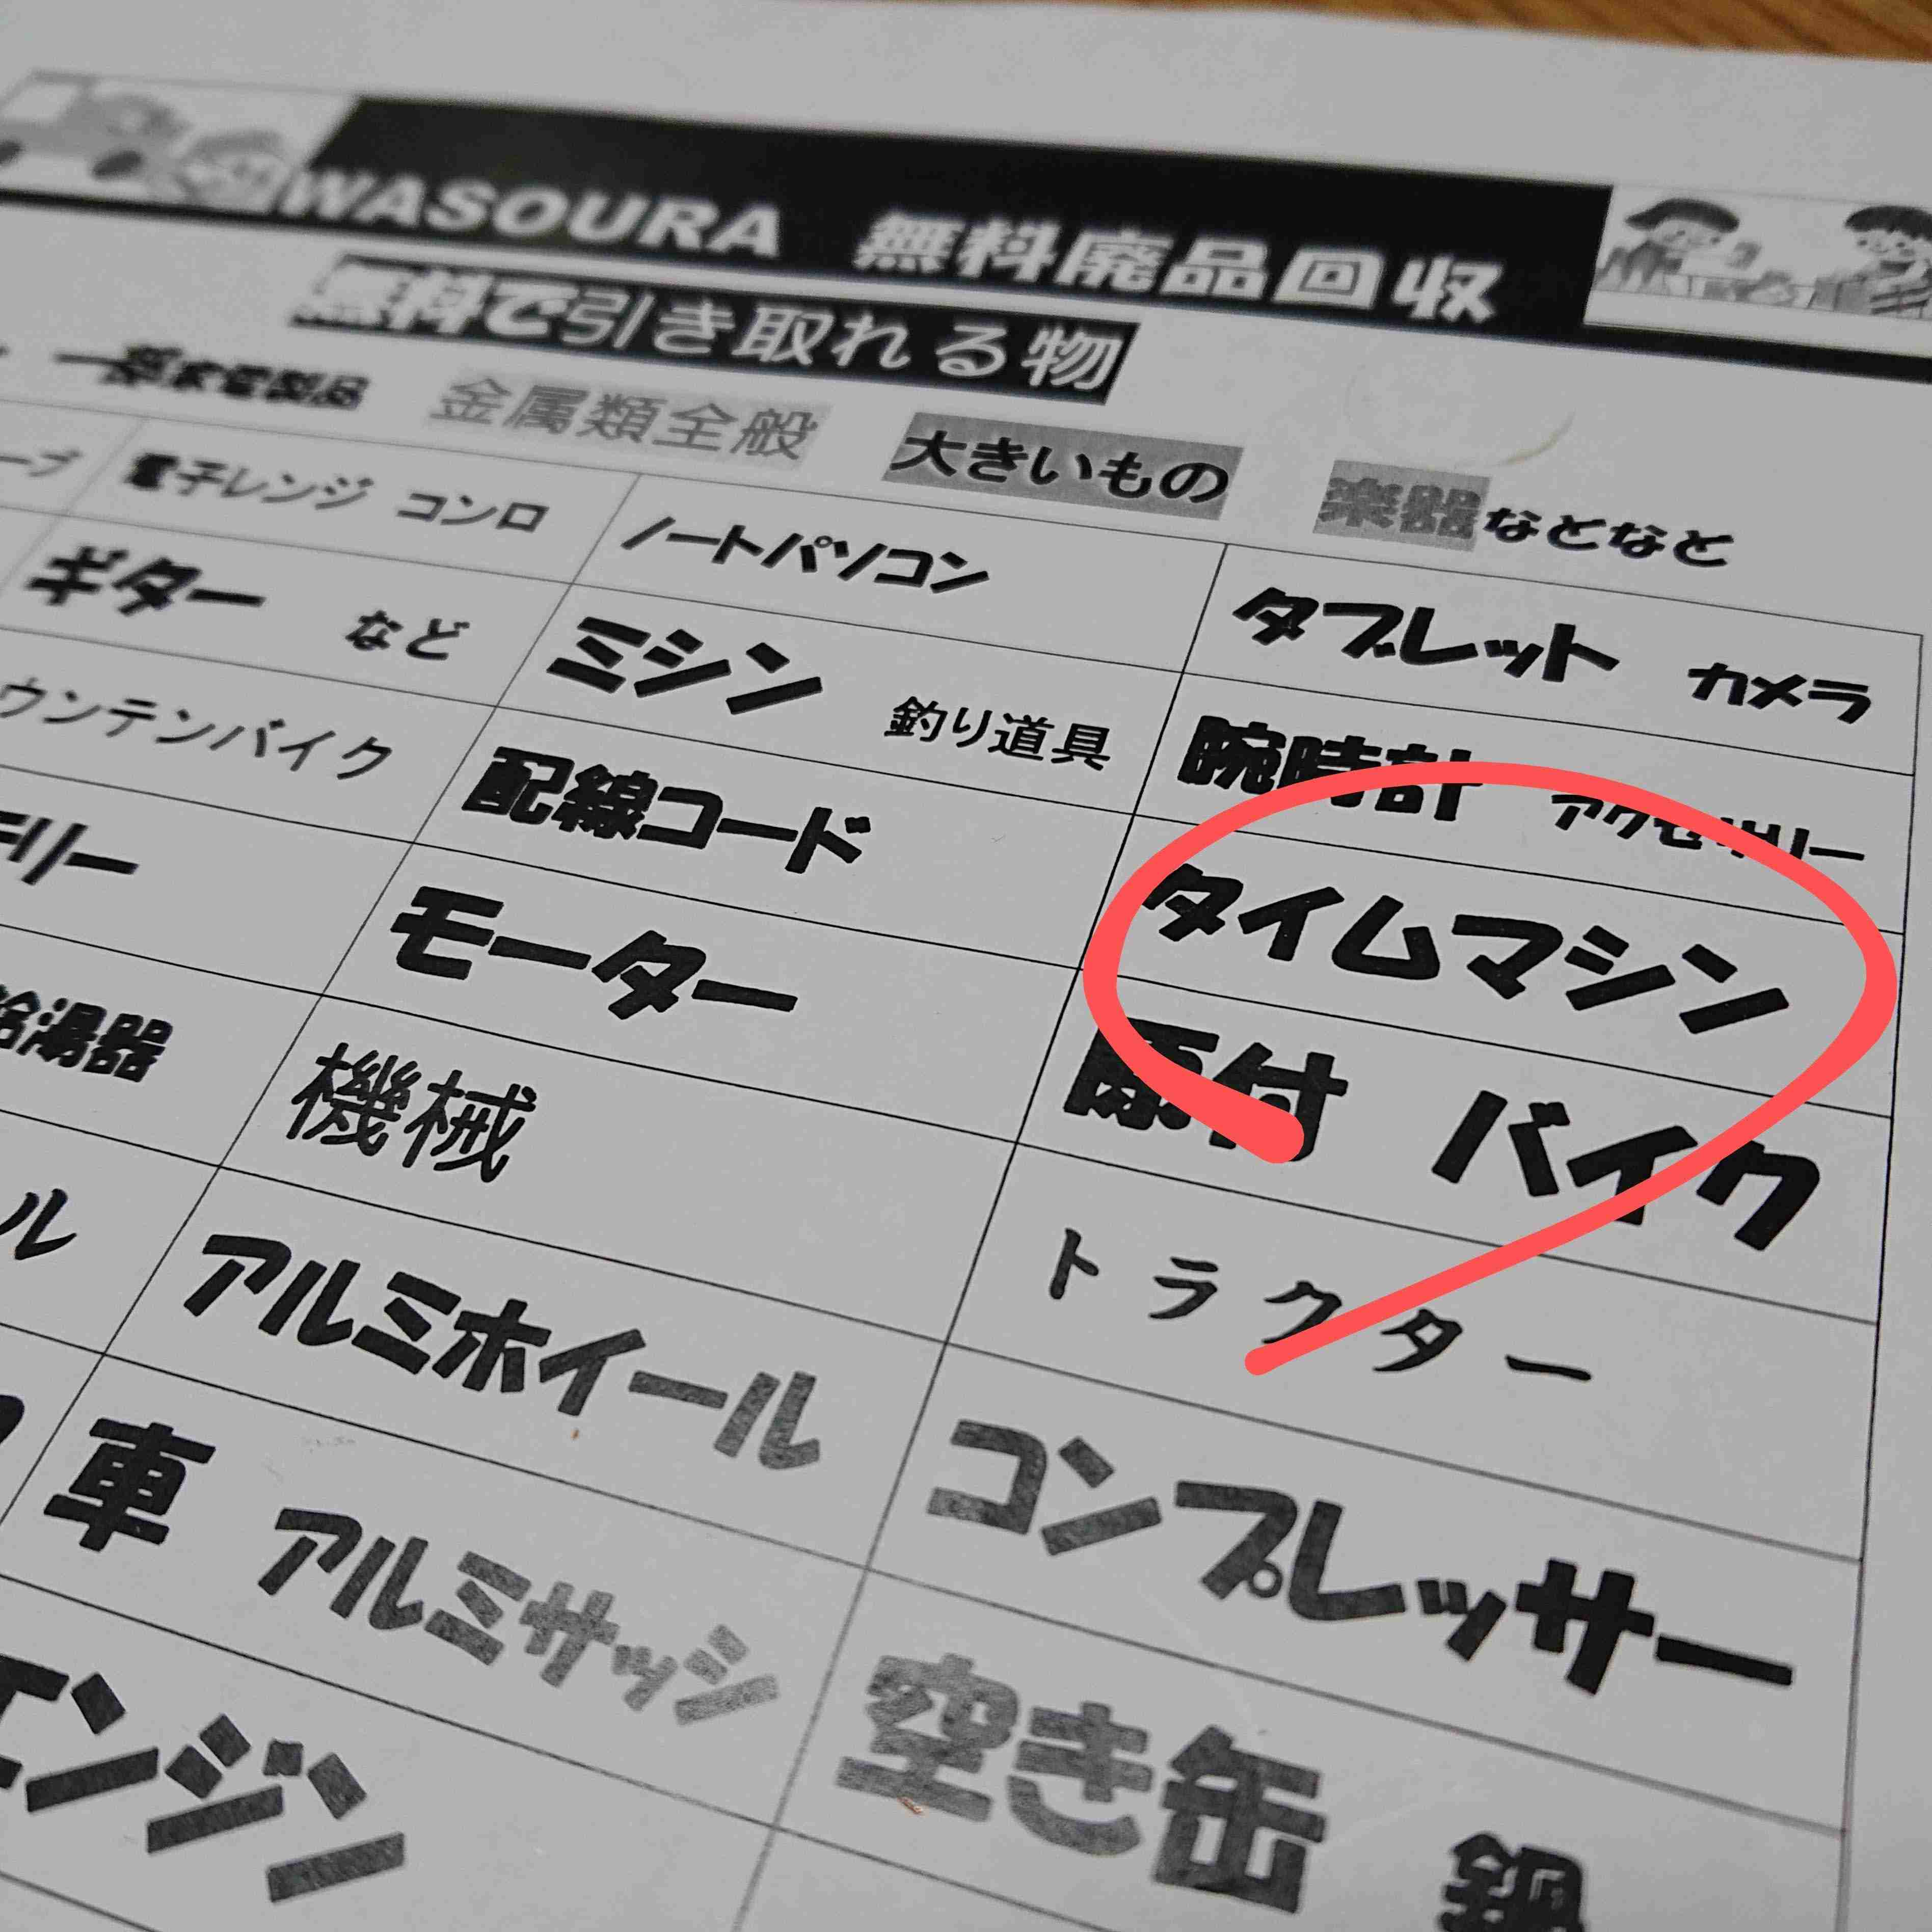 WASOURA 無料廃品回収
無料で引き取れる物
一部家電製品 金属類全般 大きいもの 楽器などなど
電子レンジ コンロ ノートパソコン タブレット カメラ
ギター など ミシン 釣り道具 腕時計 アクセサリー
ウンテンバイク 配線コード タイムマシン
テリー モーター 原付 バイク
給湯器 機械 トラクター
ル アルミホイール コンプレッサー
車 アルミサッシ 空き缶 鍋
エンジン